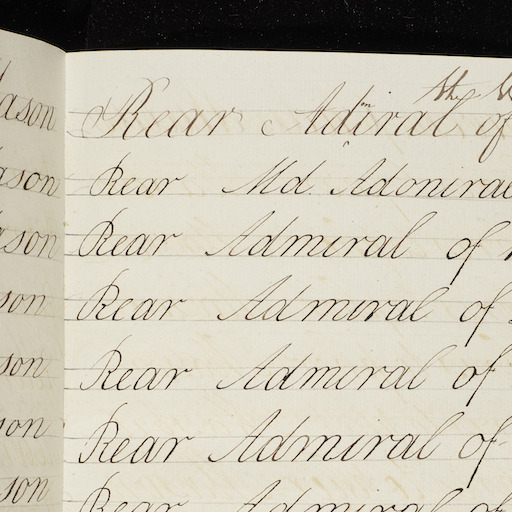 ason
ason
ason
son
son
son
son
the
Rear Admiral of
Rear Md. Adoniral
Rear Admiral of
Rear Admiral of
Rear Admiral of
Rear Admiral of
Rear Admiral of